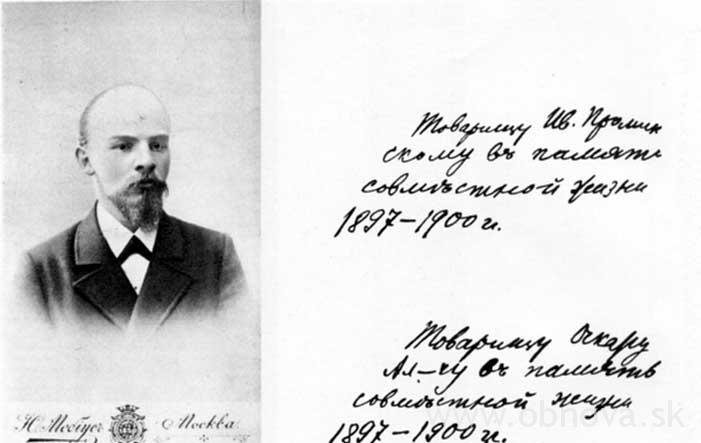 Товарищу Ив. Промин
скому въ память
совмѣстной жизни
1897–1900 г.
Товарищу Оскару
Ал–чу въ память
совмѣстной жизни
1897–1900 г.
Н. Мебiусъ Москва.
www.obnova.sk